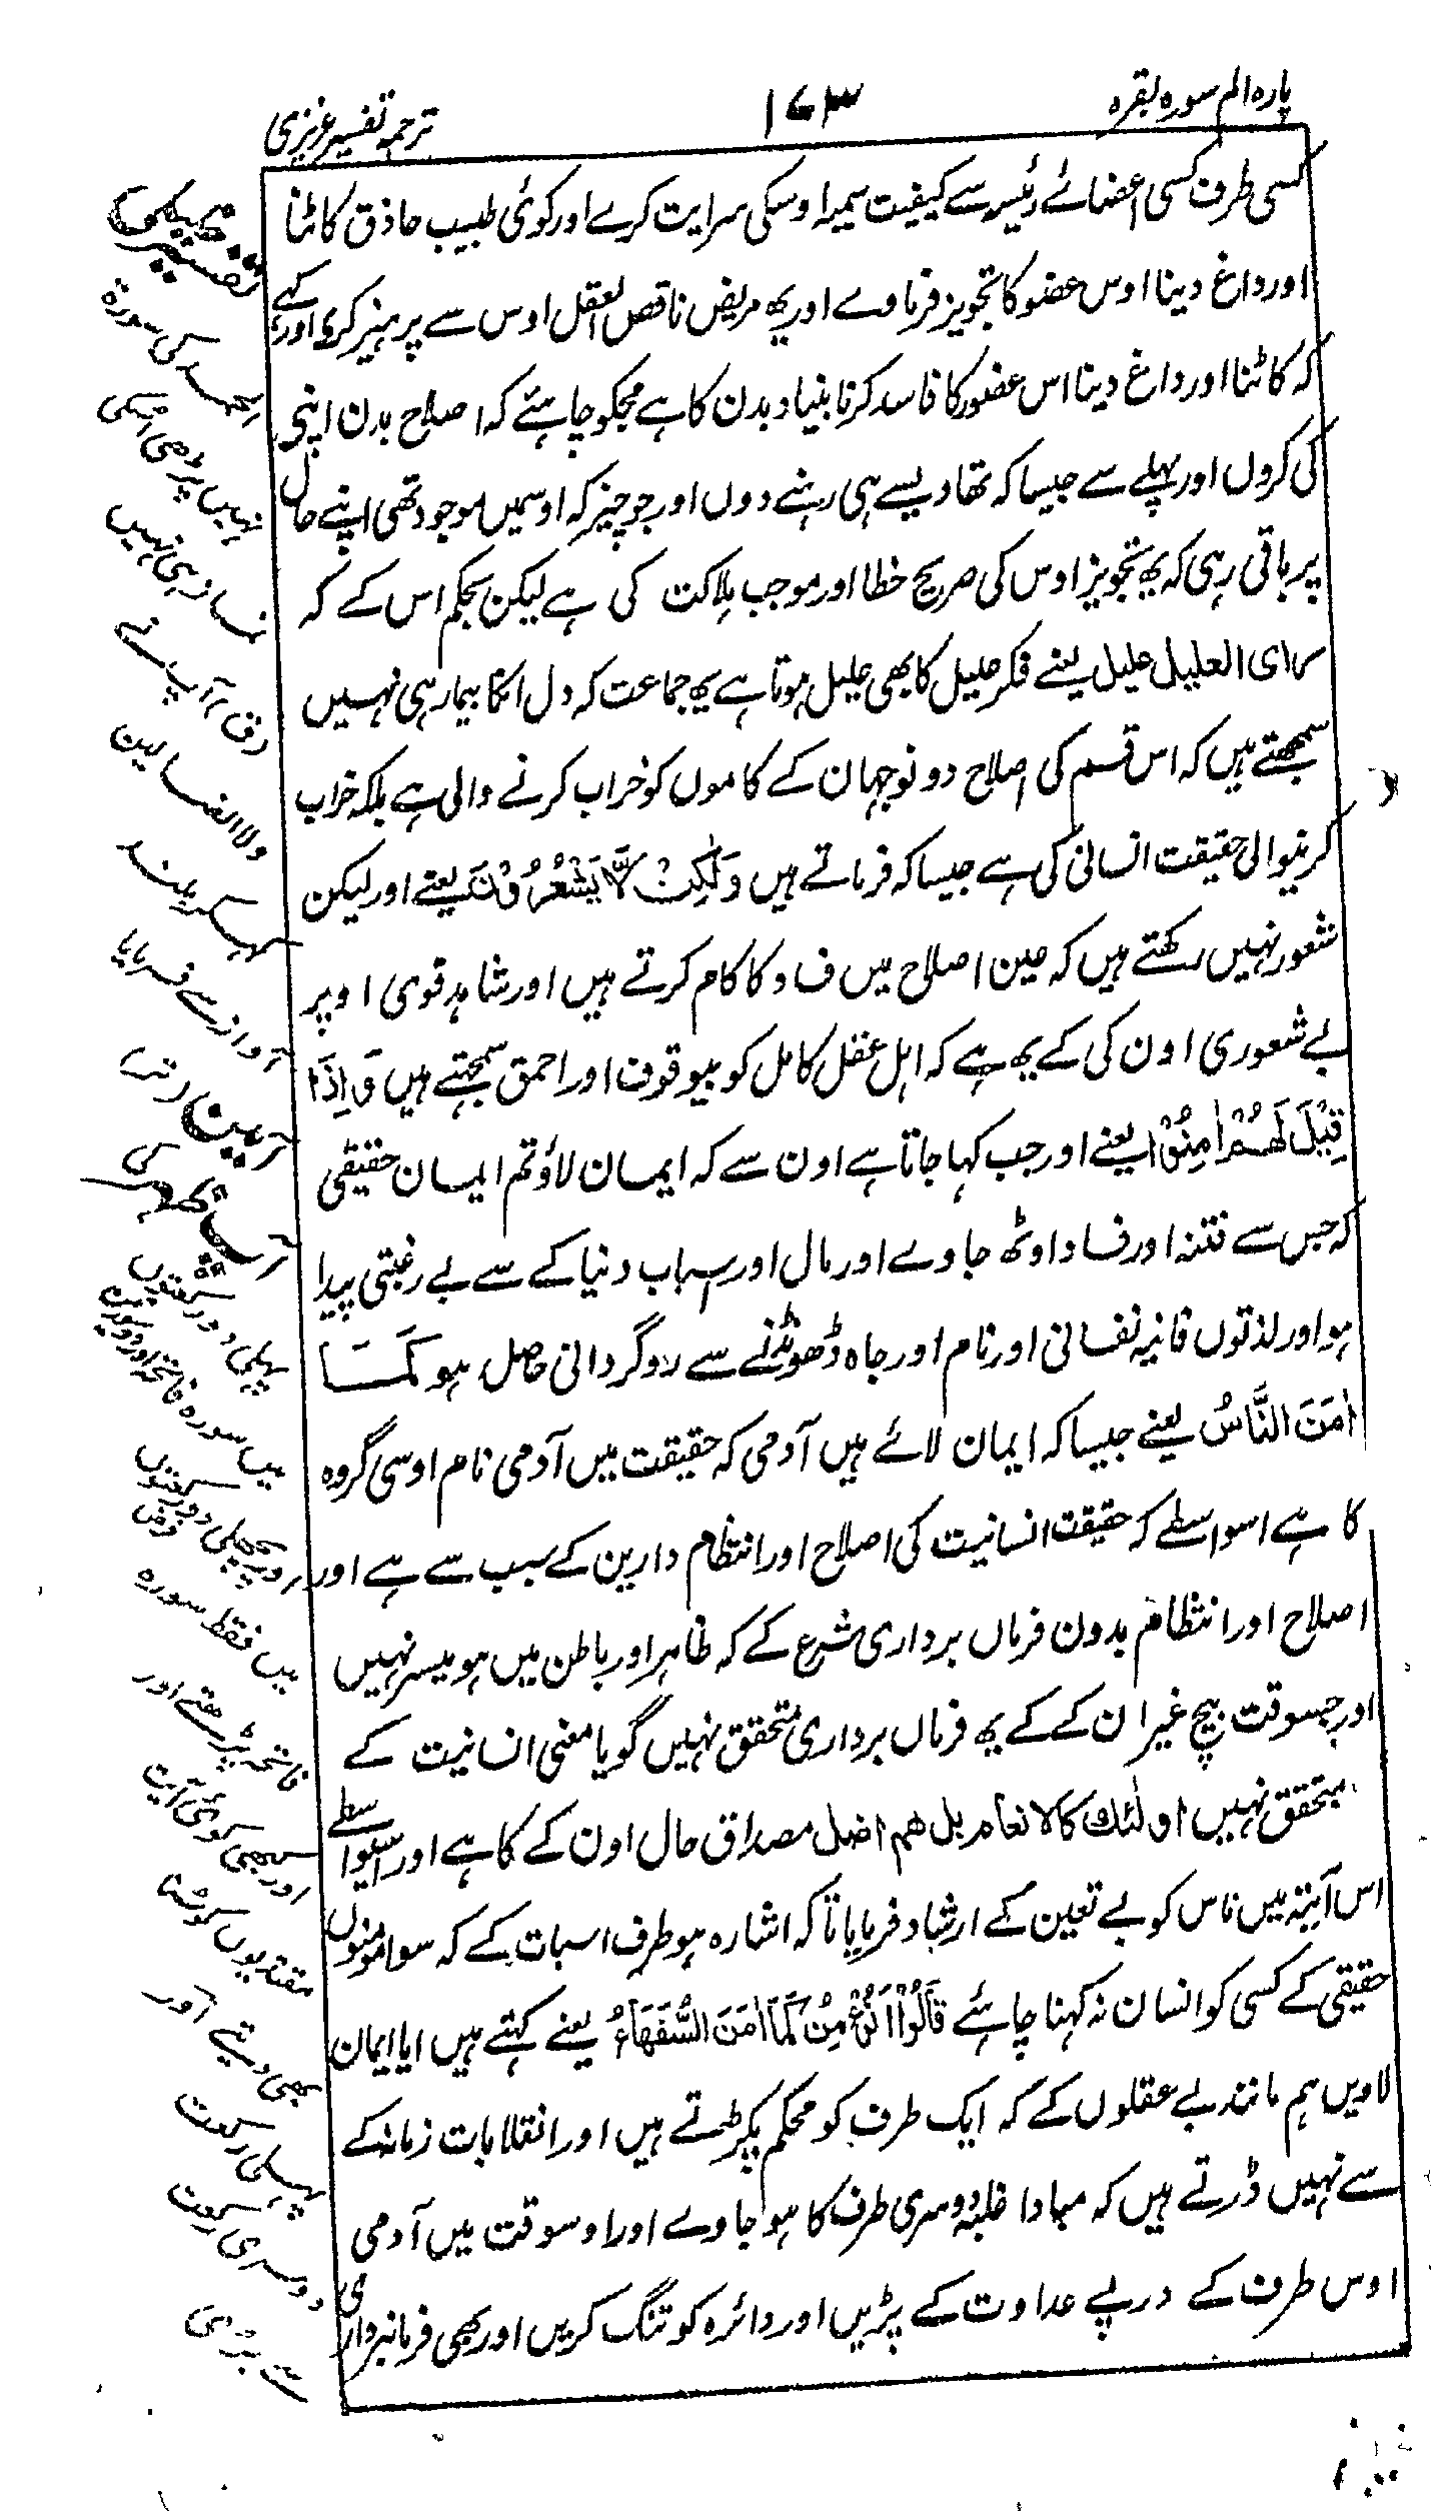 پارہ الم سورہ بقرہ
۱۷۳
ترجمہ تفسیر عزیزی
کسی طرف کسی اعضائے رئیسہ سے کیفیت سمیہ اوسکی سرایت کرے اور کوئی طبیب حاذق کاٹنا
اور داغ دینا اوس عضو کا تجویز فرماوے اور یہ مریض ناقص العقل اوس سے پرہیز کری اور کہے
کہ کاٹنا اور داغ دینا اس عضو کا فاسد کرنا بنیاد بدن کا ہے مجکو چاہئے کہ اصلاح بدن اپنی
کی کروں اور پہلے سے جیسا کہ تھا ویسے ہی رہنے دوں اور جو چیز کہ اوسمیں موجود تھی اپنے حال
پر باقی رہی کہ یہ تجویز اوس کی صریح خطا اور موجب ہلاکت کی ہے لیکن بحکم اس کے کہ
رای العلیل علیل یعنے فکر علیل کا بھی علیل ہوتا ہے یہ جماعت کہ دل انکا بیمار ہی نہیں
سمجھتے ہیں کہ اس قسم کی اصلاح دونو جہان کے کاموں کو خراب کرنے والی ہے بلکہ خراب
کرنیوالی حقیقت انسانی کی ہے جیسا کہ فرماتے ہیں وَلٰکِنْ لَّا یَشْعُرُوْنَ یعنے اور لیکن
شعور نہیں رکھتے ہیں کہ عین اصلاح میں فساد کا کام کرتے ہیں اور شاہد قوی اوپر
بے شعوری اون کی کے یہ ہے کہ اہل عقل کامل کو بیوقوف اور احمق سمجہتے ہیں وَاِذَا
قِیْلَ لَهُمْ اٰمِنُوْا یعنے اور جب کہا جاتا ہے اون سے کہ ایمان لاؤ تم ایمان حقیقی
کہ جس سے فتنہ اور فساد اوٹھ جاوے اور مال اور اسباب دنیا کے سے بے رغبتی پیدا
ہو اور لذتوں فانیہ نفسانی اور نام اور جاہ ڈھونڈنے سے روگردانی حاصل ہو کَمَا
اٰمَنَ النَّاسُ یعنے جیسا کہ ایمان لائے ہیں آدمی کہ حقیقت میں آدمی نام اوسی گروہ
کا ہے اسواسطے کہ حقیقت انسانیت کی اصلاح اور انتظام دارین کے سبب سے ہے اور
اصلاح اور انتظام بدون فرماں برداری شرع کے کہ ظاہر اور باطن میں ہو میسر نہیں
اور جسوقت بیچ غیر ان کے کے یہ فرماں برداری متحقق نہیں گویا معنی انسانیت کے
متحقق نہیں اولٰئك كالانعام بل هم اضل مصداق حال اون کے کا ہے اور اسیواسطے
اس آیتہ میں ناس کو بے تعین کے ارشاد فرمایا تا کہ اشارہ ہو طرف اسبات کے کہ سوا مومنوں
حقیقی کے کسی کو انسان نہ کہنا چاہئے قَالُوْٓا اَنُؤْمِنُ کَمَآ اٰمَنَ السُّفَهَآءُ یعنے کہتے ہیں ایا ایمان
لاویں ہم مانند بے عقلوں کے کہ ایک طرف کو محکم پکڑتے ہیں اور انقلابات زمانہ کے
سے نہیں ڈرتے ہیں کہ مبادا غلبہ دوسری طرف کا ہو جاوے اور اوسوقت میں آدمی
اوس طرف کے درپے عداوت کے پڑیں اور دائرہ کو تنگ کریں اور بھی فرمانبرداری
الحمد کی سورة
نہیں پڑھی اسکی
نماز ہی نہیں
ف آپ نے
ولا الضالین
کہکر بلند
آواز سے فرمایا
آمین
پہلی دو رکعتوں
میں سورہ فاتحہ اور دو سورتیں
اور پچھلی دو رکعتوں
میں فقط سورہ
فاتحہ پڑھتے اور
اور کبھی کوئی آیت
مقتدیوں کو سنا
بھی دیتے اور
پہلی رکعت
دوسری رکعت
سے بڑی